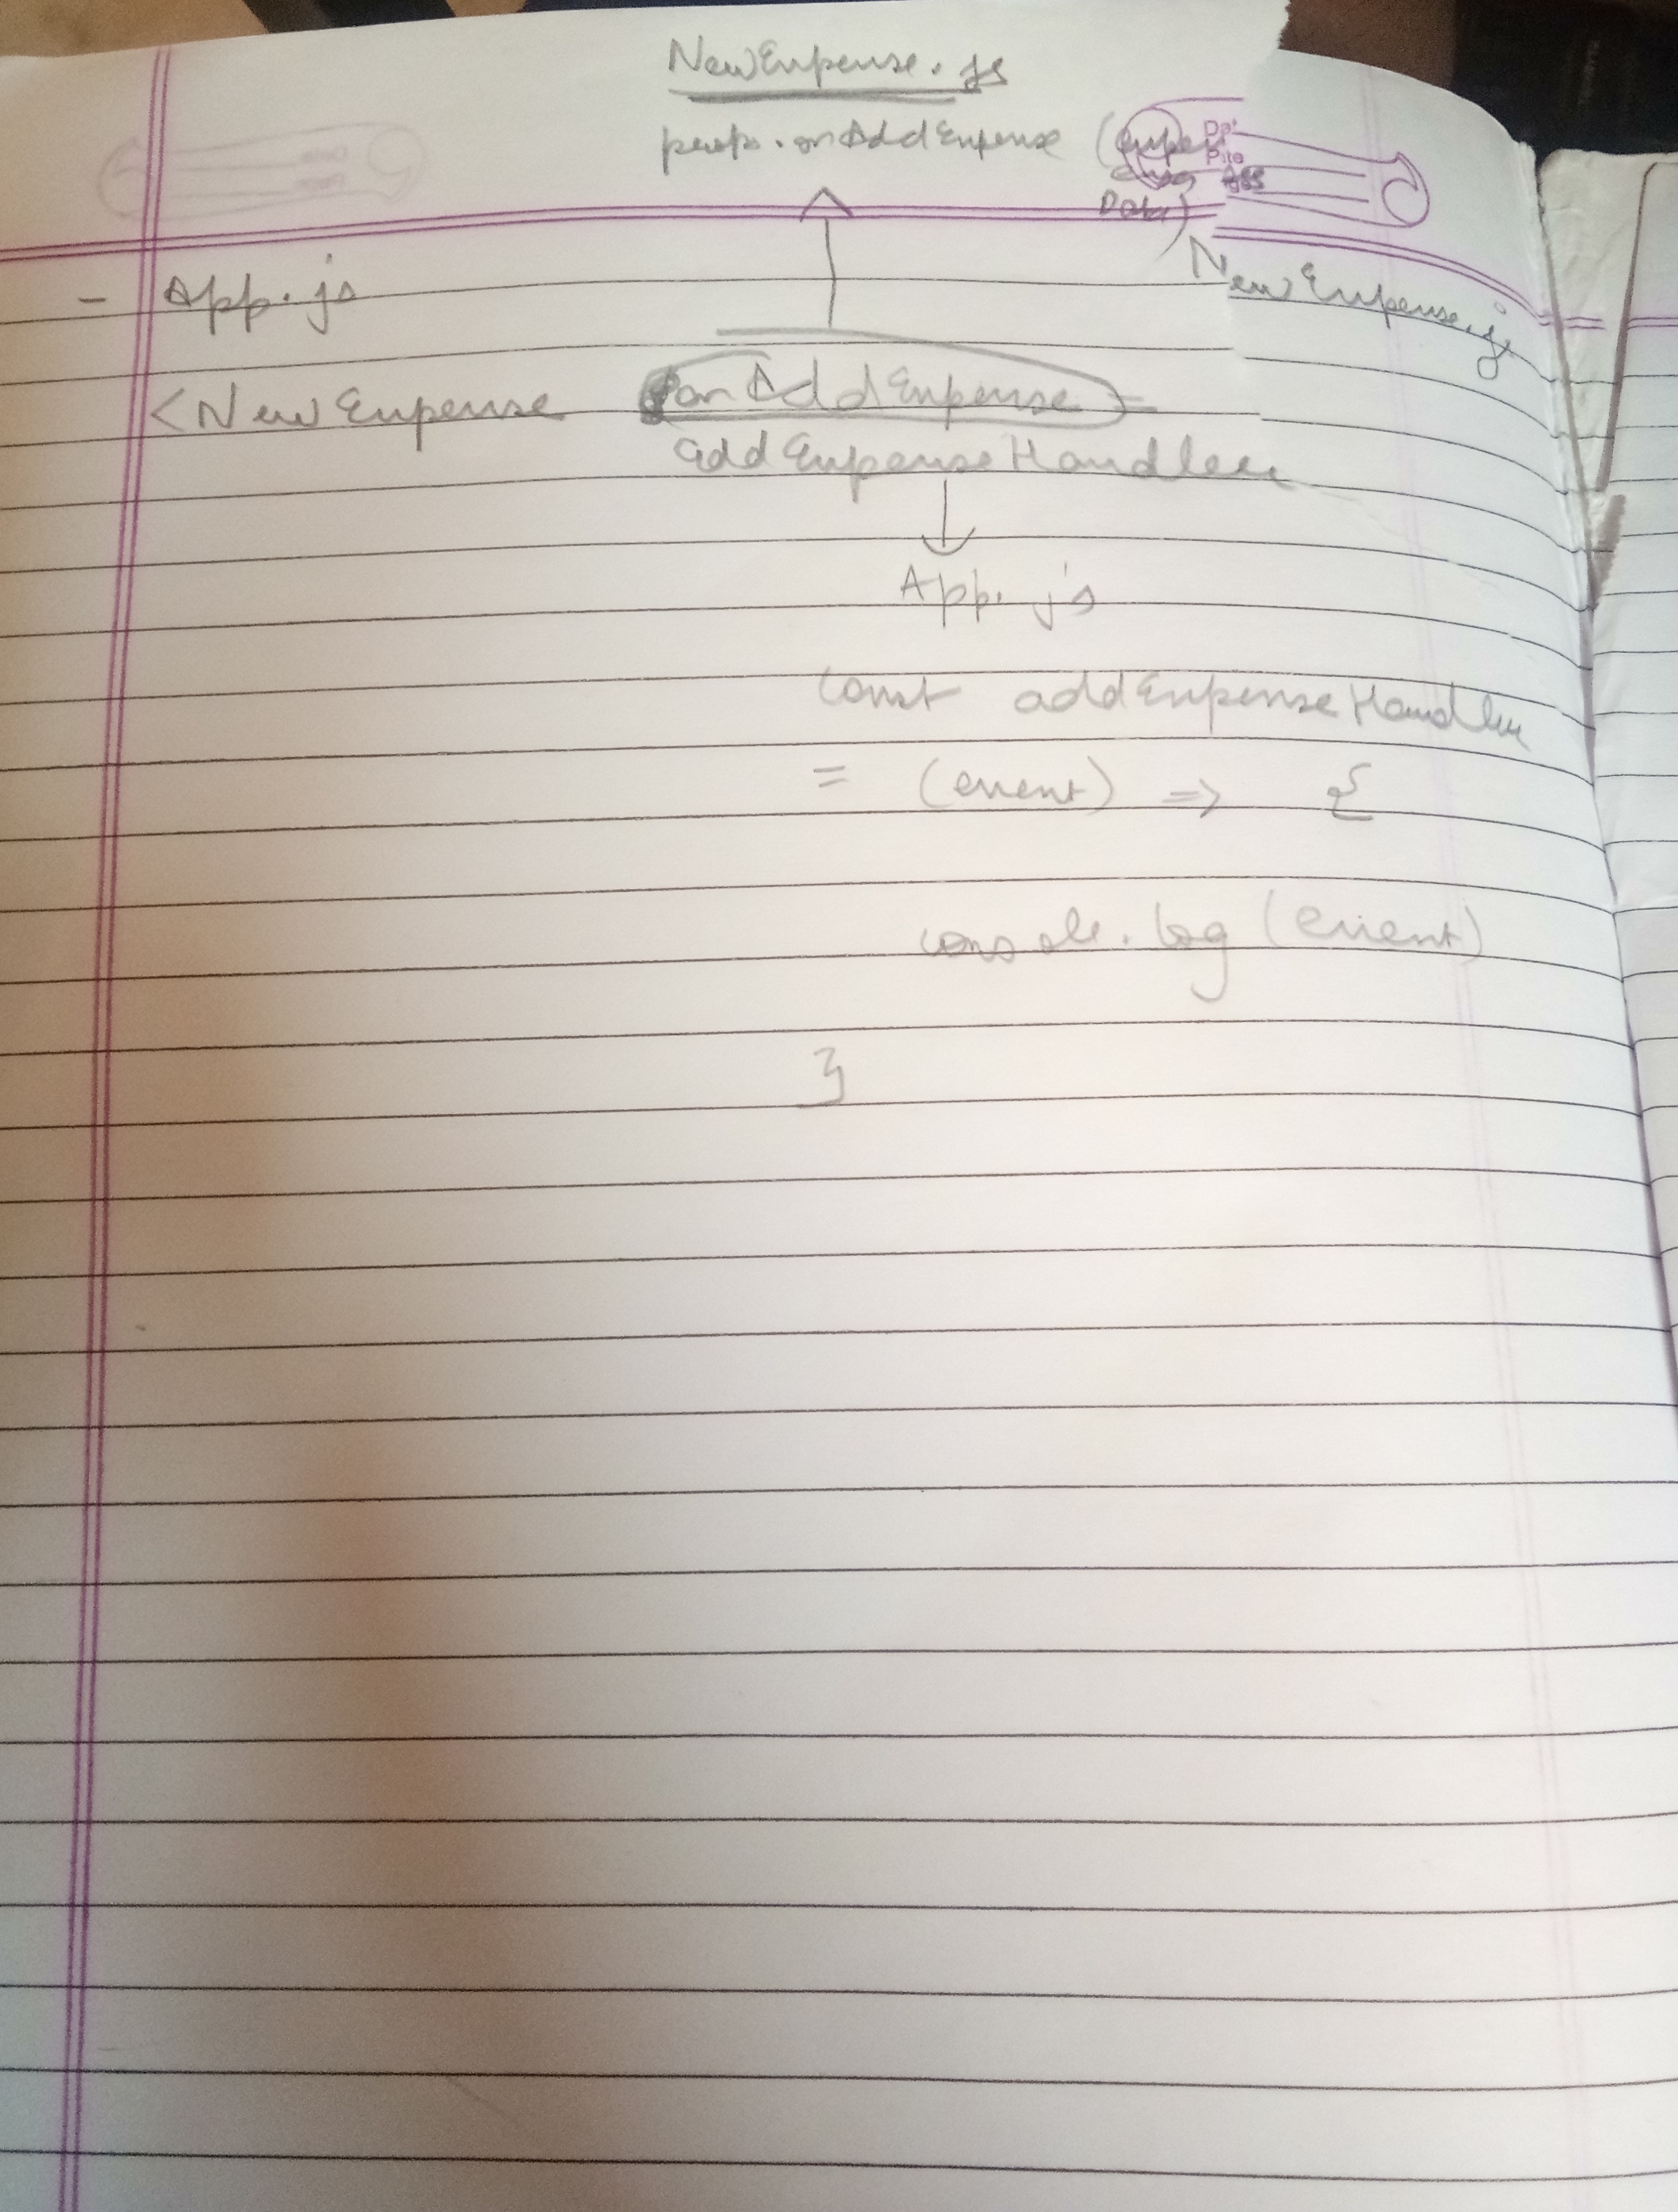 NewExpense.js
props.onAddExpense (expen
Data)
NewExpense.js
- App.js
<NewExpense onAddExpense =
addExpenseHandler
App.js
const addExpenseHandler
= (event) => {
console.log (event)
}